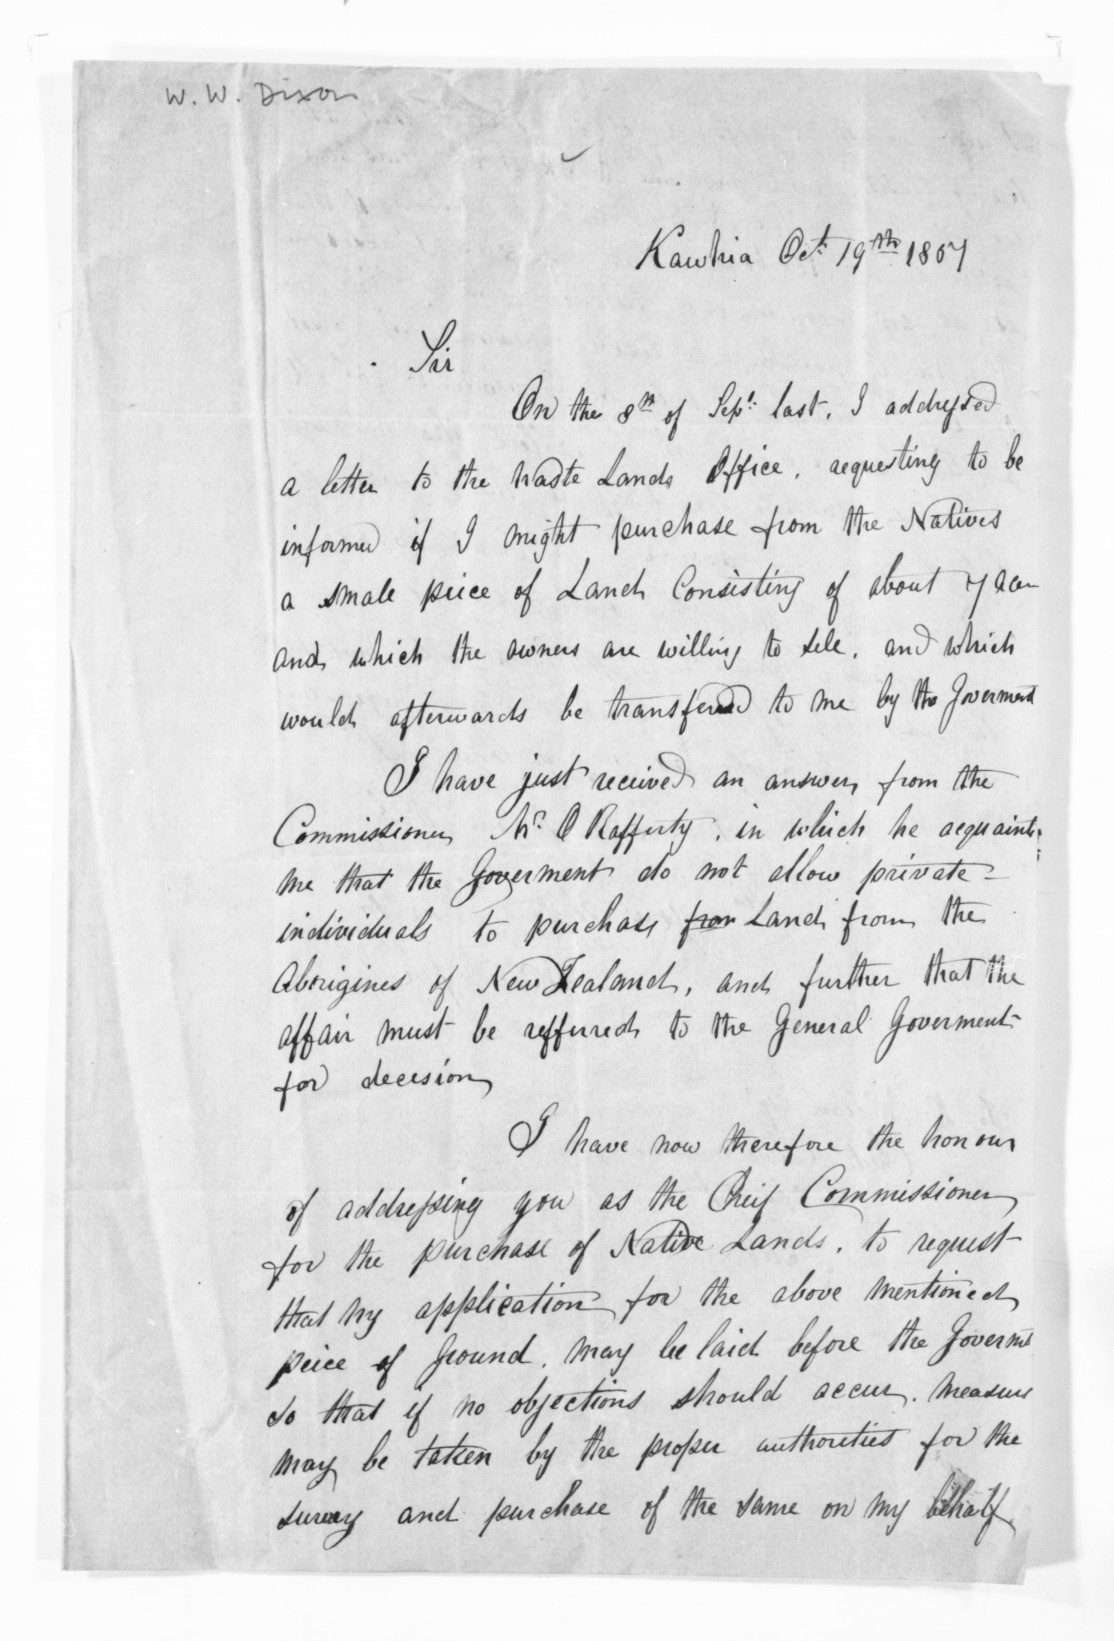 W. W. Dixon
Kawhia Oct. 19th 1857
Sir
On the 8th of Sept. last, I addressed
a letter to the Waste Lands Office, requesting to be
informed if I might purchase from the Natives
a small peice of Land Consisting of about 7 acres
and which the owners are willing to sell, and which
would afterwards be transfered to me by the Goverment
I have just received an answer from the
Commissioner Mr. O Rafferty, in which he acquaints
me that the Goverment do not allow private
individuals to purchase from Land from the
Aborigines of New Zealand, and further that the
affair must be refferred to the General Goverment
for decision
I have now therefore the honour
of addressing you as the Cheif Commissioner
for the purchase of Native Lands, to request
that my application for the above mentioned
peice of Ground, may be laid before the Governmt
so that if no objections should accur, measures
may be taken by the proper authorities for the
survey and purchase of the same on my behalf